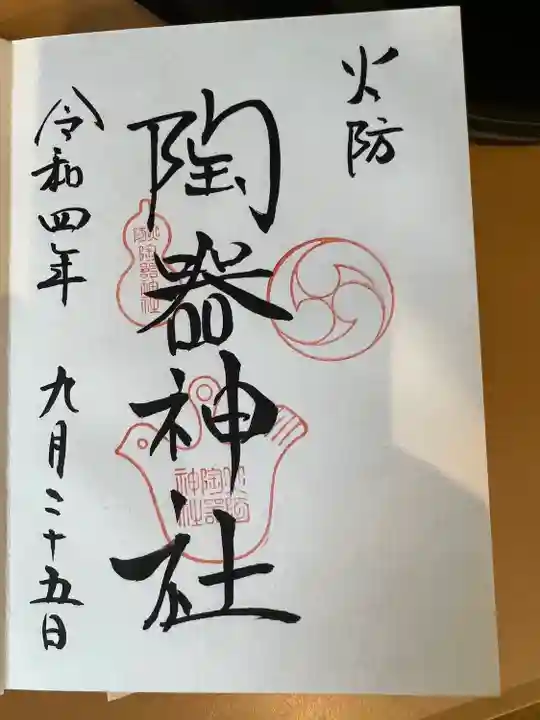 火防
陶器神社
令和四年 九月二十五日
火防陶器神社
火防陶器神社